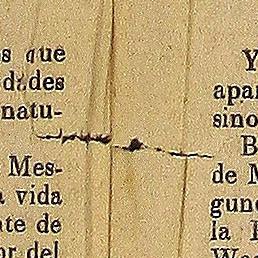 s que
dades
natu-
Mes-
vida
te de
or del
Y
apar
sino
B
de M
gun
la